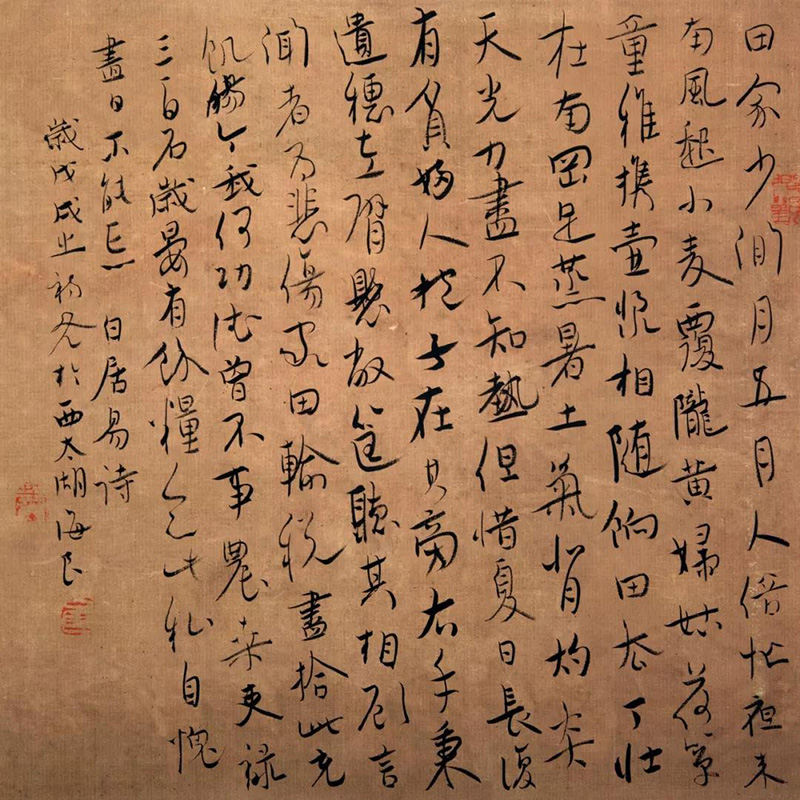 田家少閒月五月人倍忙夜来
南風起小麦覆隴黄婦姑荷箪
童稚携壺漿相随餉田去丁壮
在南岡足蒸暑土氣背灼炎
天光力盡不知熱但惜夏日長復
有貧婦人抱子在其旁右手秉
遺穗左臂懸敝筐聽其相顾言
聞者为悲傷家田輸税盡拾此充
飢腸今我何功德曾不事農桑吏禄
三百石歲晏有餘糧念此私自愧
盡日不能忘 白居易詩
歲戊戌之初冬於西太湖海